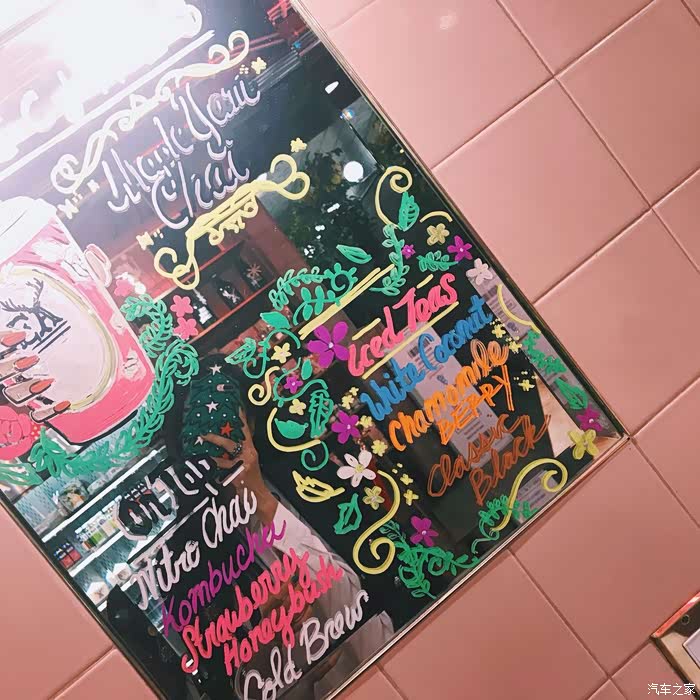 Made Yami
Chai
Iced Teas
White Coconut
Chamomile
BERRY
Classic
Black
Nitro Chai
Kombucha
Strawberry
Honeybush
Cold Brew
汽车之家